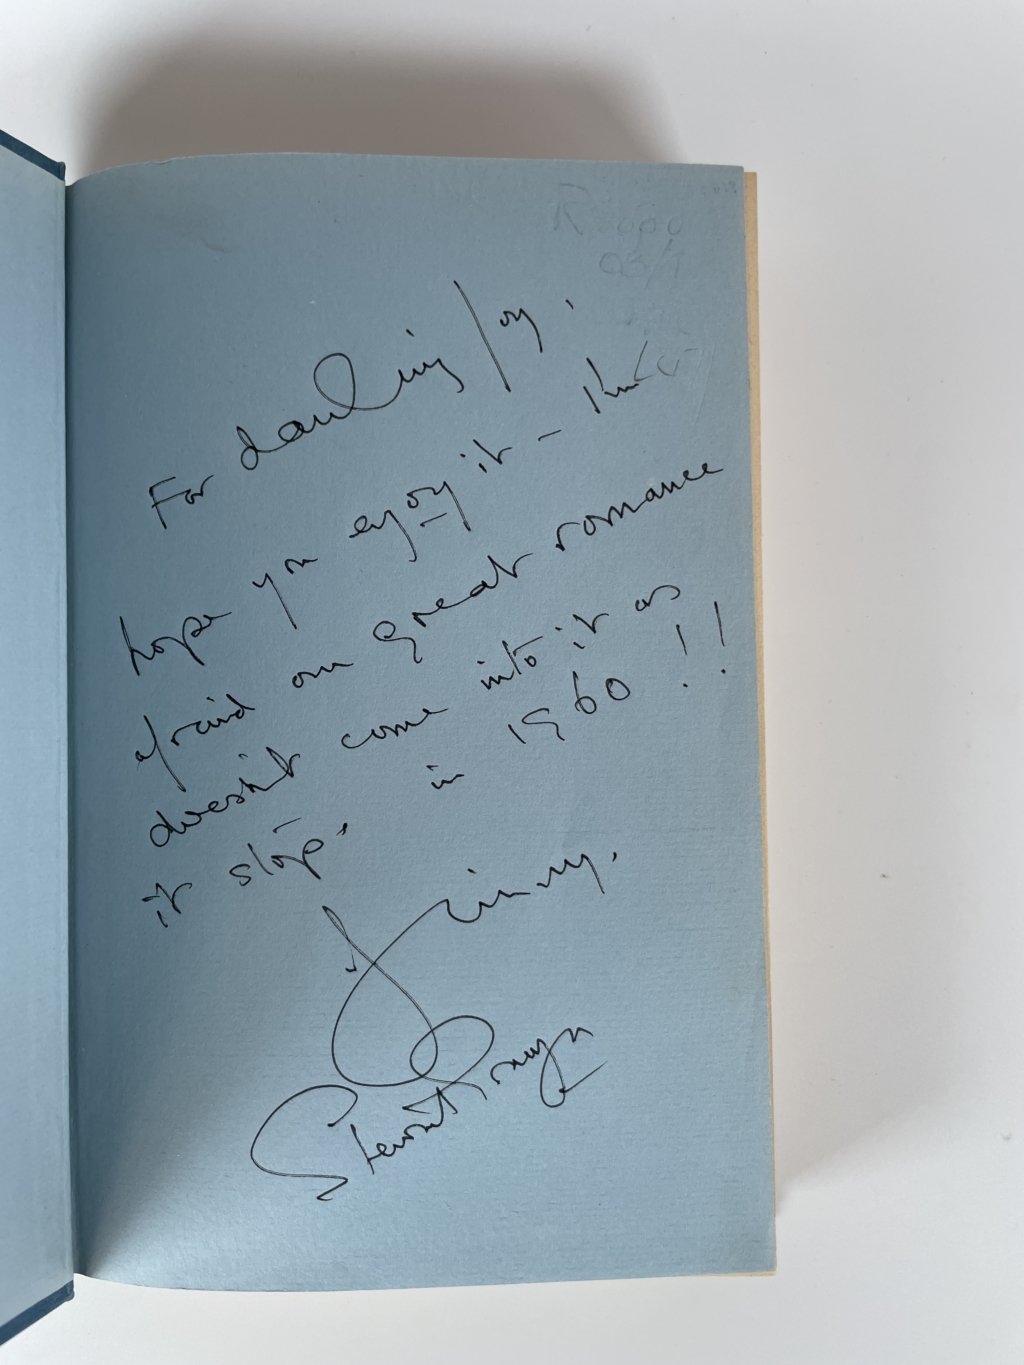 For darling Joy,
hope you enjoy it – I'm
afraid our Great romance
doesn't come into it as
it stops in 1960!!
Jimmy.
Stewart Granger